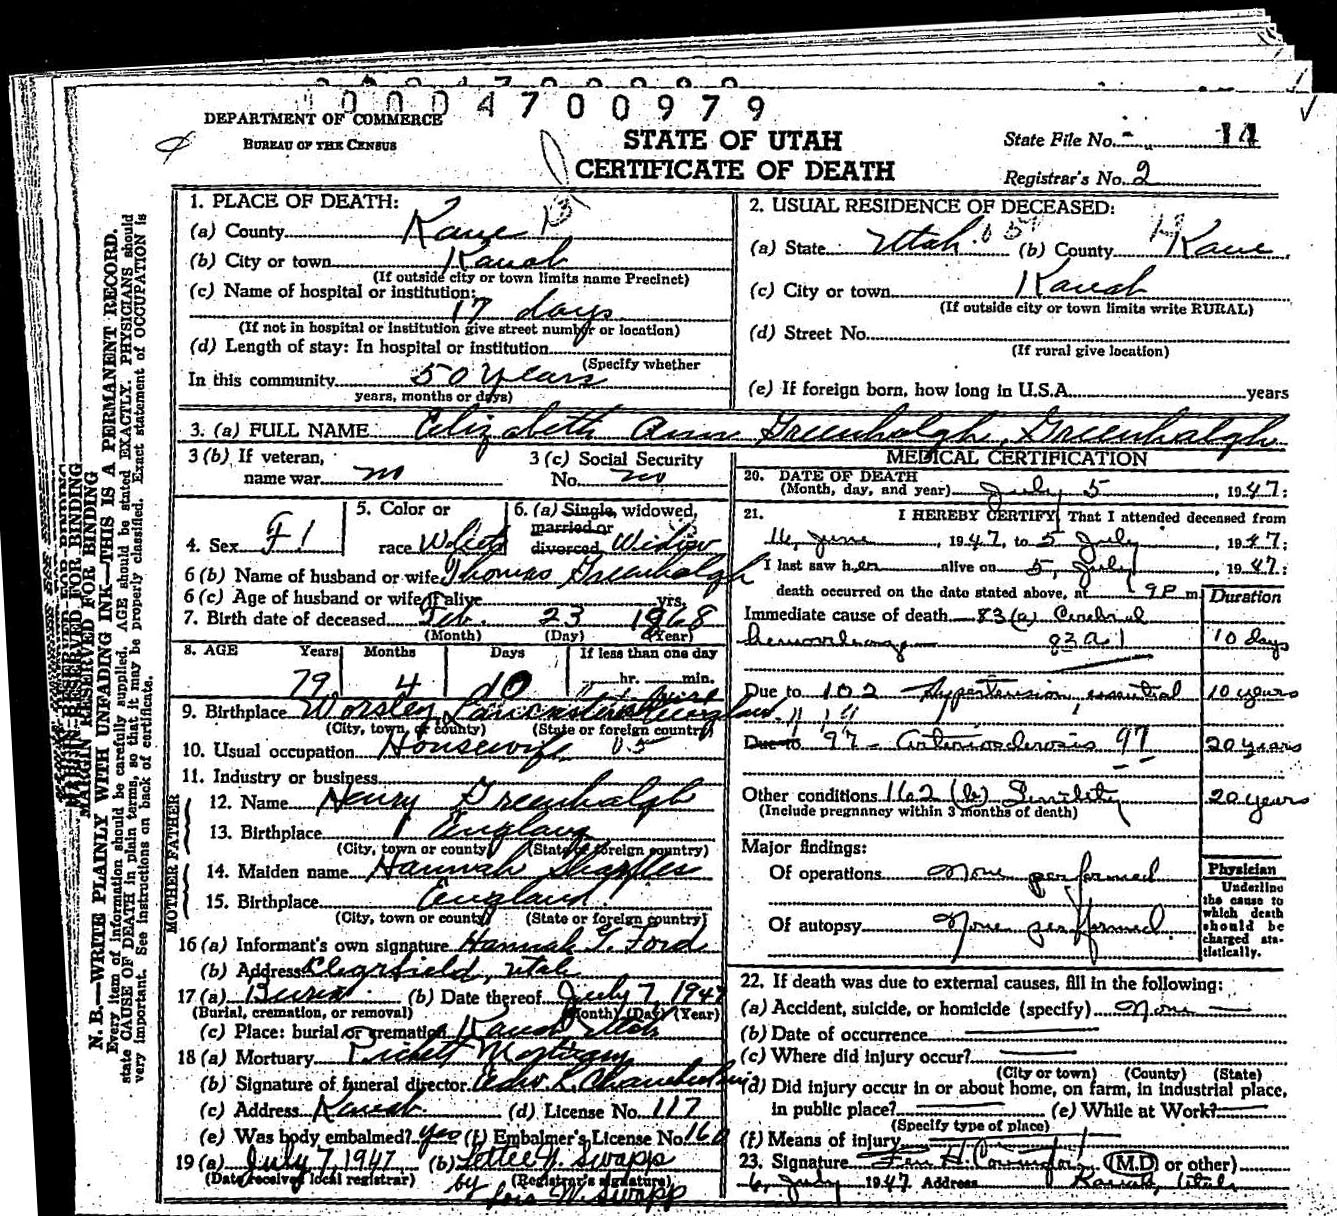 1 0 0 0 4 7 0 0 9 7 9
DEPARTMENT OF COMMERCE
BUREAU OF THE CENSUS
STATE OF UTAH
CERTIFICATE OF DEATH
State File No. 14
Registrar's No. 2
MARGIN RESERVED FOR BINDING
N. B.—WRITE PLAINLY WITH UNFADING INK—THIS IS A PERMANENT RECORD.
Every item of information should be carefully supplied. AGE should be stated EXACTLY. PHYSICIANS should
state CAUSE OF DEATH in plain terms, so that it may be properly classified. Exact statement of OCCUPATION is
very important. See instructions on back of certificate.
1. PLACE OF DEATH:
(a) County Kane
(b) City or town Kanab
(If outside city or town limits name Precinct)
(c) Name of hospital or institution:
17 days
(If not in hospital or institution give street number or location)
(d) Length of stay: In hospital or institution
(Specify whether
In this community 50 years
years, months or days)
2. USUAL RESIDENCE OF DECEASED:
(a) State Utah (b) County Kane
(c) City or town Kanab
(If outside city or town limits write RURAL)
(d) Street No.
(If rural give location)
(e) If foreign born, how long in U.S.A. years
3. (a) FULL NAME Elizabeth Ann Greenhalgh, Greenhalgh
3 (b) If veteran,
name war no
3 (c) Social Security
No. no
4. Sex F
5. Color or
race White
6. (a) Single, widowed,
married or
divorced, Widow
6 (b) Name of husband or wife Thomas Greenhalgh
6 (c) Age of husband or wife if alive yrs.
7. Birth date of deceased Feb. 23 1868
(Month) (Day) (Year)
8. AGE Years Months Days If less than one day
79 4 10 hr. min.
9. Birthplace Worsley, Lancanshire England
(City, town, or county) (State or foreign country)
10. Usual occupation Housewife
11. Industry or business
FATHER
12. Name Henry Greenhalgh
13. Birthplace England
(City, town or county) (State or foreign country)
MOTHER
14. Maiden name Hannah Sharples
15. Birthplace England
(City, town or county) (State or foreign country)
16 (a) Informant's own signature Hannah G. Ford
(b) Address Clearfield, Utah
17 (a) Burial (b) Date thereof July 7, 1947
(Burial, cremation, or removal) (Month) (Day) (Year)
(c) Place: burial or cremation Kanab Utah
18 (a) Mortuary Mortuary
(b) Signature of funeral director
(c) Address Kanab (d) License No. 117
(e) Was body embalmed? yes (f) Embalmer's License No. 160
19 (a) July 7, 1947 (b) Swapp
(Date received local registrar) (Registrar's signature)
by Lois W. Swapp
MEDICAL CERTIFICATION
20. DATE OF DEATH
(Month, day, and year) July 5, 1947:
21. I HEREBY CERTIFY, That I attended deceased from
16, June, 1947, to 5 July, 1947:
I last saw her alive on 5, July, 1947:
death occurred on the date stated above, at 9P m
Duration
Immediate cause of death 83(a) Cerebral
hemorrhage 83 a 1 10 days
Due to 102 Hypertension, essential 10 years
Due to 97 - Arteriosclerosis 97 20 years
Other conditions 162 (b) Senility 20 years
(Include pregnancy within 3 months of death)
Major findings:
Of operations None performed
Of autopsy None performed.
Physician
Underline
the cause to
which death
should be
charged sta-
tistically.
22. If death was due to external causes, fill in the following:
(a) Accident, suicide, or homicide (specify) None
(b) Date of occurrence
(c) Where did injury occur?
(City or town) (County) (State)
(d) Did injury occur in or about home, on farm, in industrial place,
in public place? (e) While at Work?
(Specify type of place)
(f) Means of injury
23. Signature (M.D. or other)
6, July 1947 Address Kanab, Utah